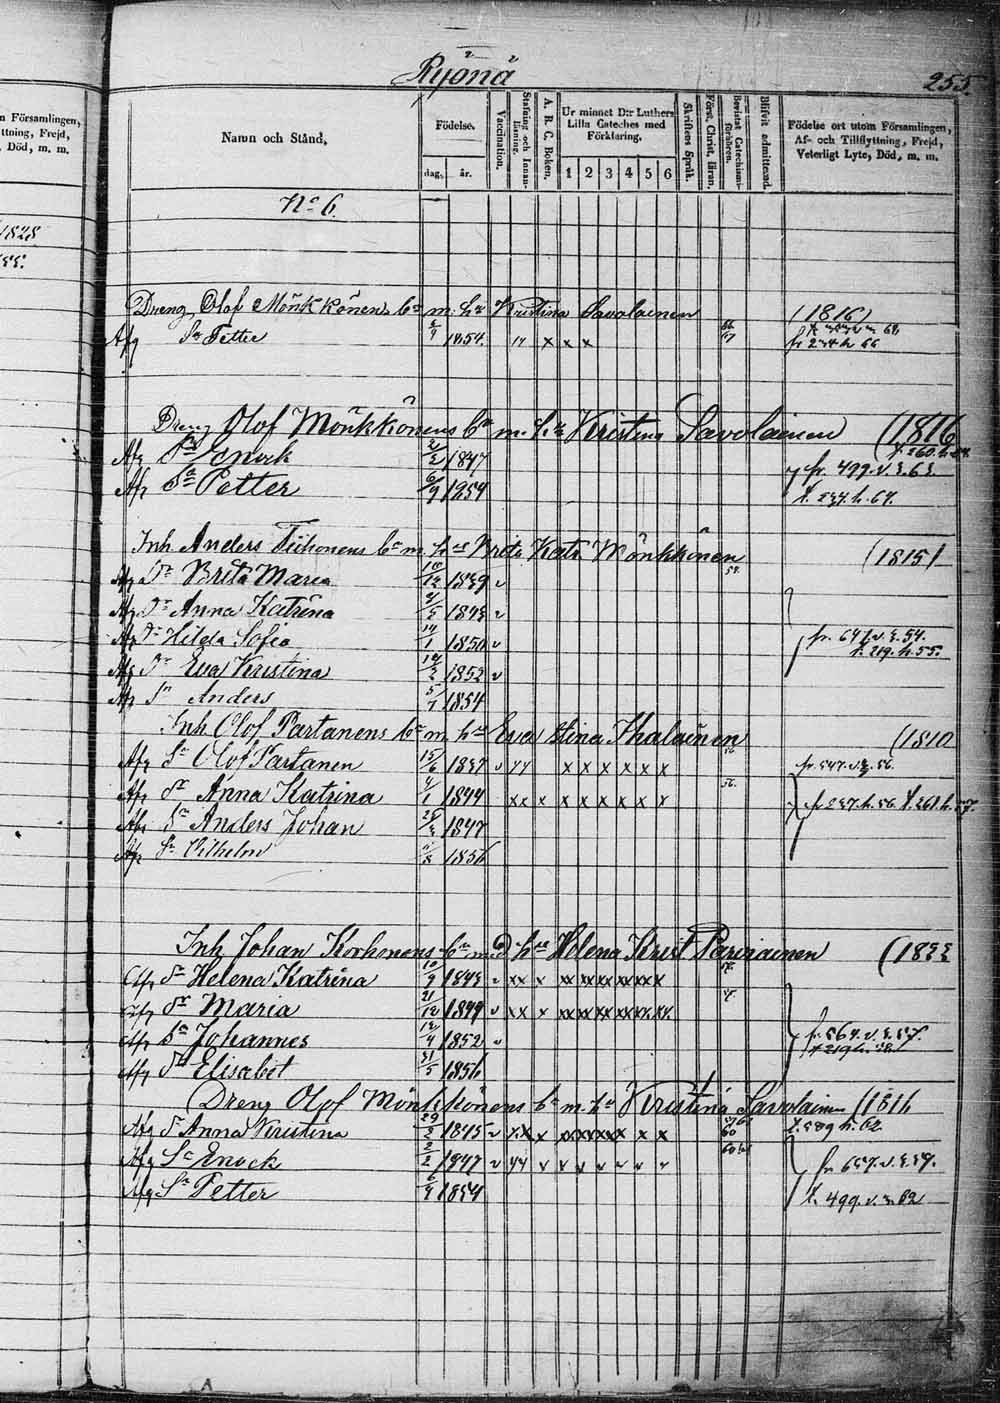 Ryönä
255.
n Församlingen,
ttning, Frejd,
Död, m. m.
1828
Namn och Stånd.
Födelse.
dag.
år.
Vaccination.
Stafning och Innanläsning.
A. B. C. Boken.
Ur minnet D:r Luthers
Lilla Cateches med
Förklaring.
1 2 3 4 5 6
Skriftens Språk.
Först. Christ. läran.
Bevistat Catechismiförhören.
Blifvit admitterad.
Födelse ort utom Församlingen,
Af- och Tillflyttning, Frejd,
Veterligt Lyte, Död, m. m.
No 6.
Dreng Olof Mönkkönens bn m. hu Kristina Savolainen (1816)
Afg Sn Petter 6/9 1854. x x x 66 67
fr 234 h 66
Dreng Olof Mönkkönens bn m. hu Kristina Savolainen (1816
Afg Sn Enock 2/2 1847 t. 260. h.
Afg Sn Petter 6/9 1854 fr. 499. v. 3. 63.
t. 234. h. 67.
Inh Anders Tiihonens bn m. hu Brita Katr Mönkkönen (1815)
Afg Dr Brita Maria 10/12 1839 v
Afg Dr Anna Katrina 1843 v
Afg Dr Hilda Sofia 14/1 1850 v fr. 641. v. 3. 54.
t. 219. h. 55.
Afg Dr Eva Kristina 1852 v
Afg Sn Anders 5/1 1854
Inh Olof Partanens bn m. hu Eva Stina Ihalainen (1810
Afg Sn Olof Partanen 1837 v x x x x x x fr. 547. v. 3. 56.
Afg Dr Anna Katrina 4/1 1844 xx x x x x x x x 56. fr 237. h. 56. t. 261. h. 57.
Afg Sn Anders Johan 1847
Afg Sn Vilhelm 1856
Inh Johan Korhonens bn med hu Helena Krist Parviainen (1833
Afg Dr Helena Katrina 10/9 1843 v xx x xx xx xx xx xx x
Afg Dr Maria 21/12 1849 v xx x xx xx xx xx xx xx
Afg Sn Johannes 12/4 1852 v fr. 564. v. 3. 57.
t 219 h. 58.
Afg Dr Elisabet 31/5 1856
Dreng Olof Mönkkönens bn m. hu Kristina Savolainen (1816
Afg Dr Anna Kristina 1845 v xx x xx xx xx x x x 60 t. 589 h. 62
Afg Sn Enock 2/2 1847 v fr. 657. v. 3. 59.
Afg Sn Petter 6/9 1854 t. 499. v. 3. 62